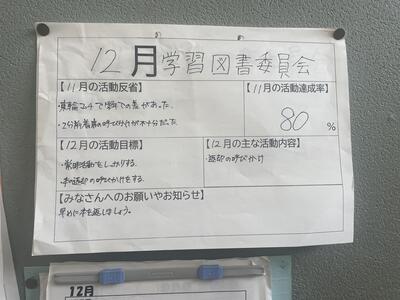 12月学習図書委員会
【11月の活動反省】
【11月の活動達成率】
・2分前着席の呼びかけが不十分だった。
80 %
【12月の活動目標】
【12月の主な活動内容】
・常時活動をしっかりする。
・返却の呼びかけ
・本の返却の呼びかけをする。
【みなさんへのお願いやお知らせ】
早めに本を返しましょう。
12月